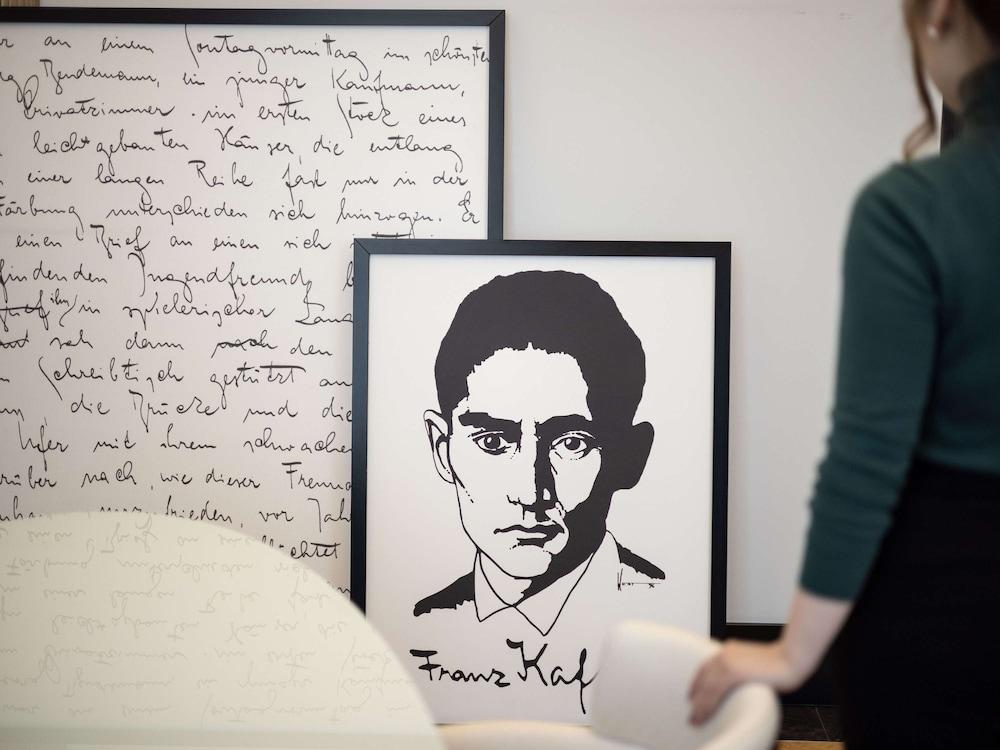 an einem Sontagvormittag im schönsten
Bendemann, ein junger Kaufmann,
Privatzimmer im ersten Stock eines
leichtgebauten Häuser, die entlang
einer langen Reihe fast nur in der
Färbung unterschieden sich hinzogen. Er
einen Brief an einen sich
findenden Jugendfreund
ihn in spielerischer
sah dann nach den
Schreibtisch gestützt
die Brücke und die
Ufer mit ihrem schwache
rüber nach, wie dieser Freund
zufrieden, vor Jah
Franz Kaf